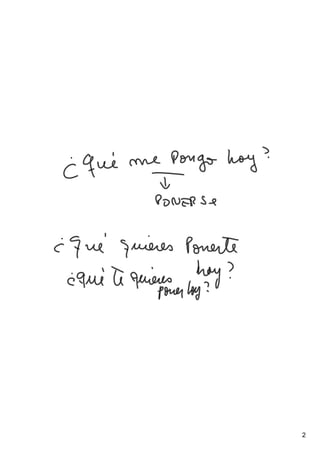 ¿Qué me Pongo hoy?
↓
PONERSe
¿Qué quieres Ponerte
hoy?
¿qué Te quieres
poner hoy?
2